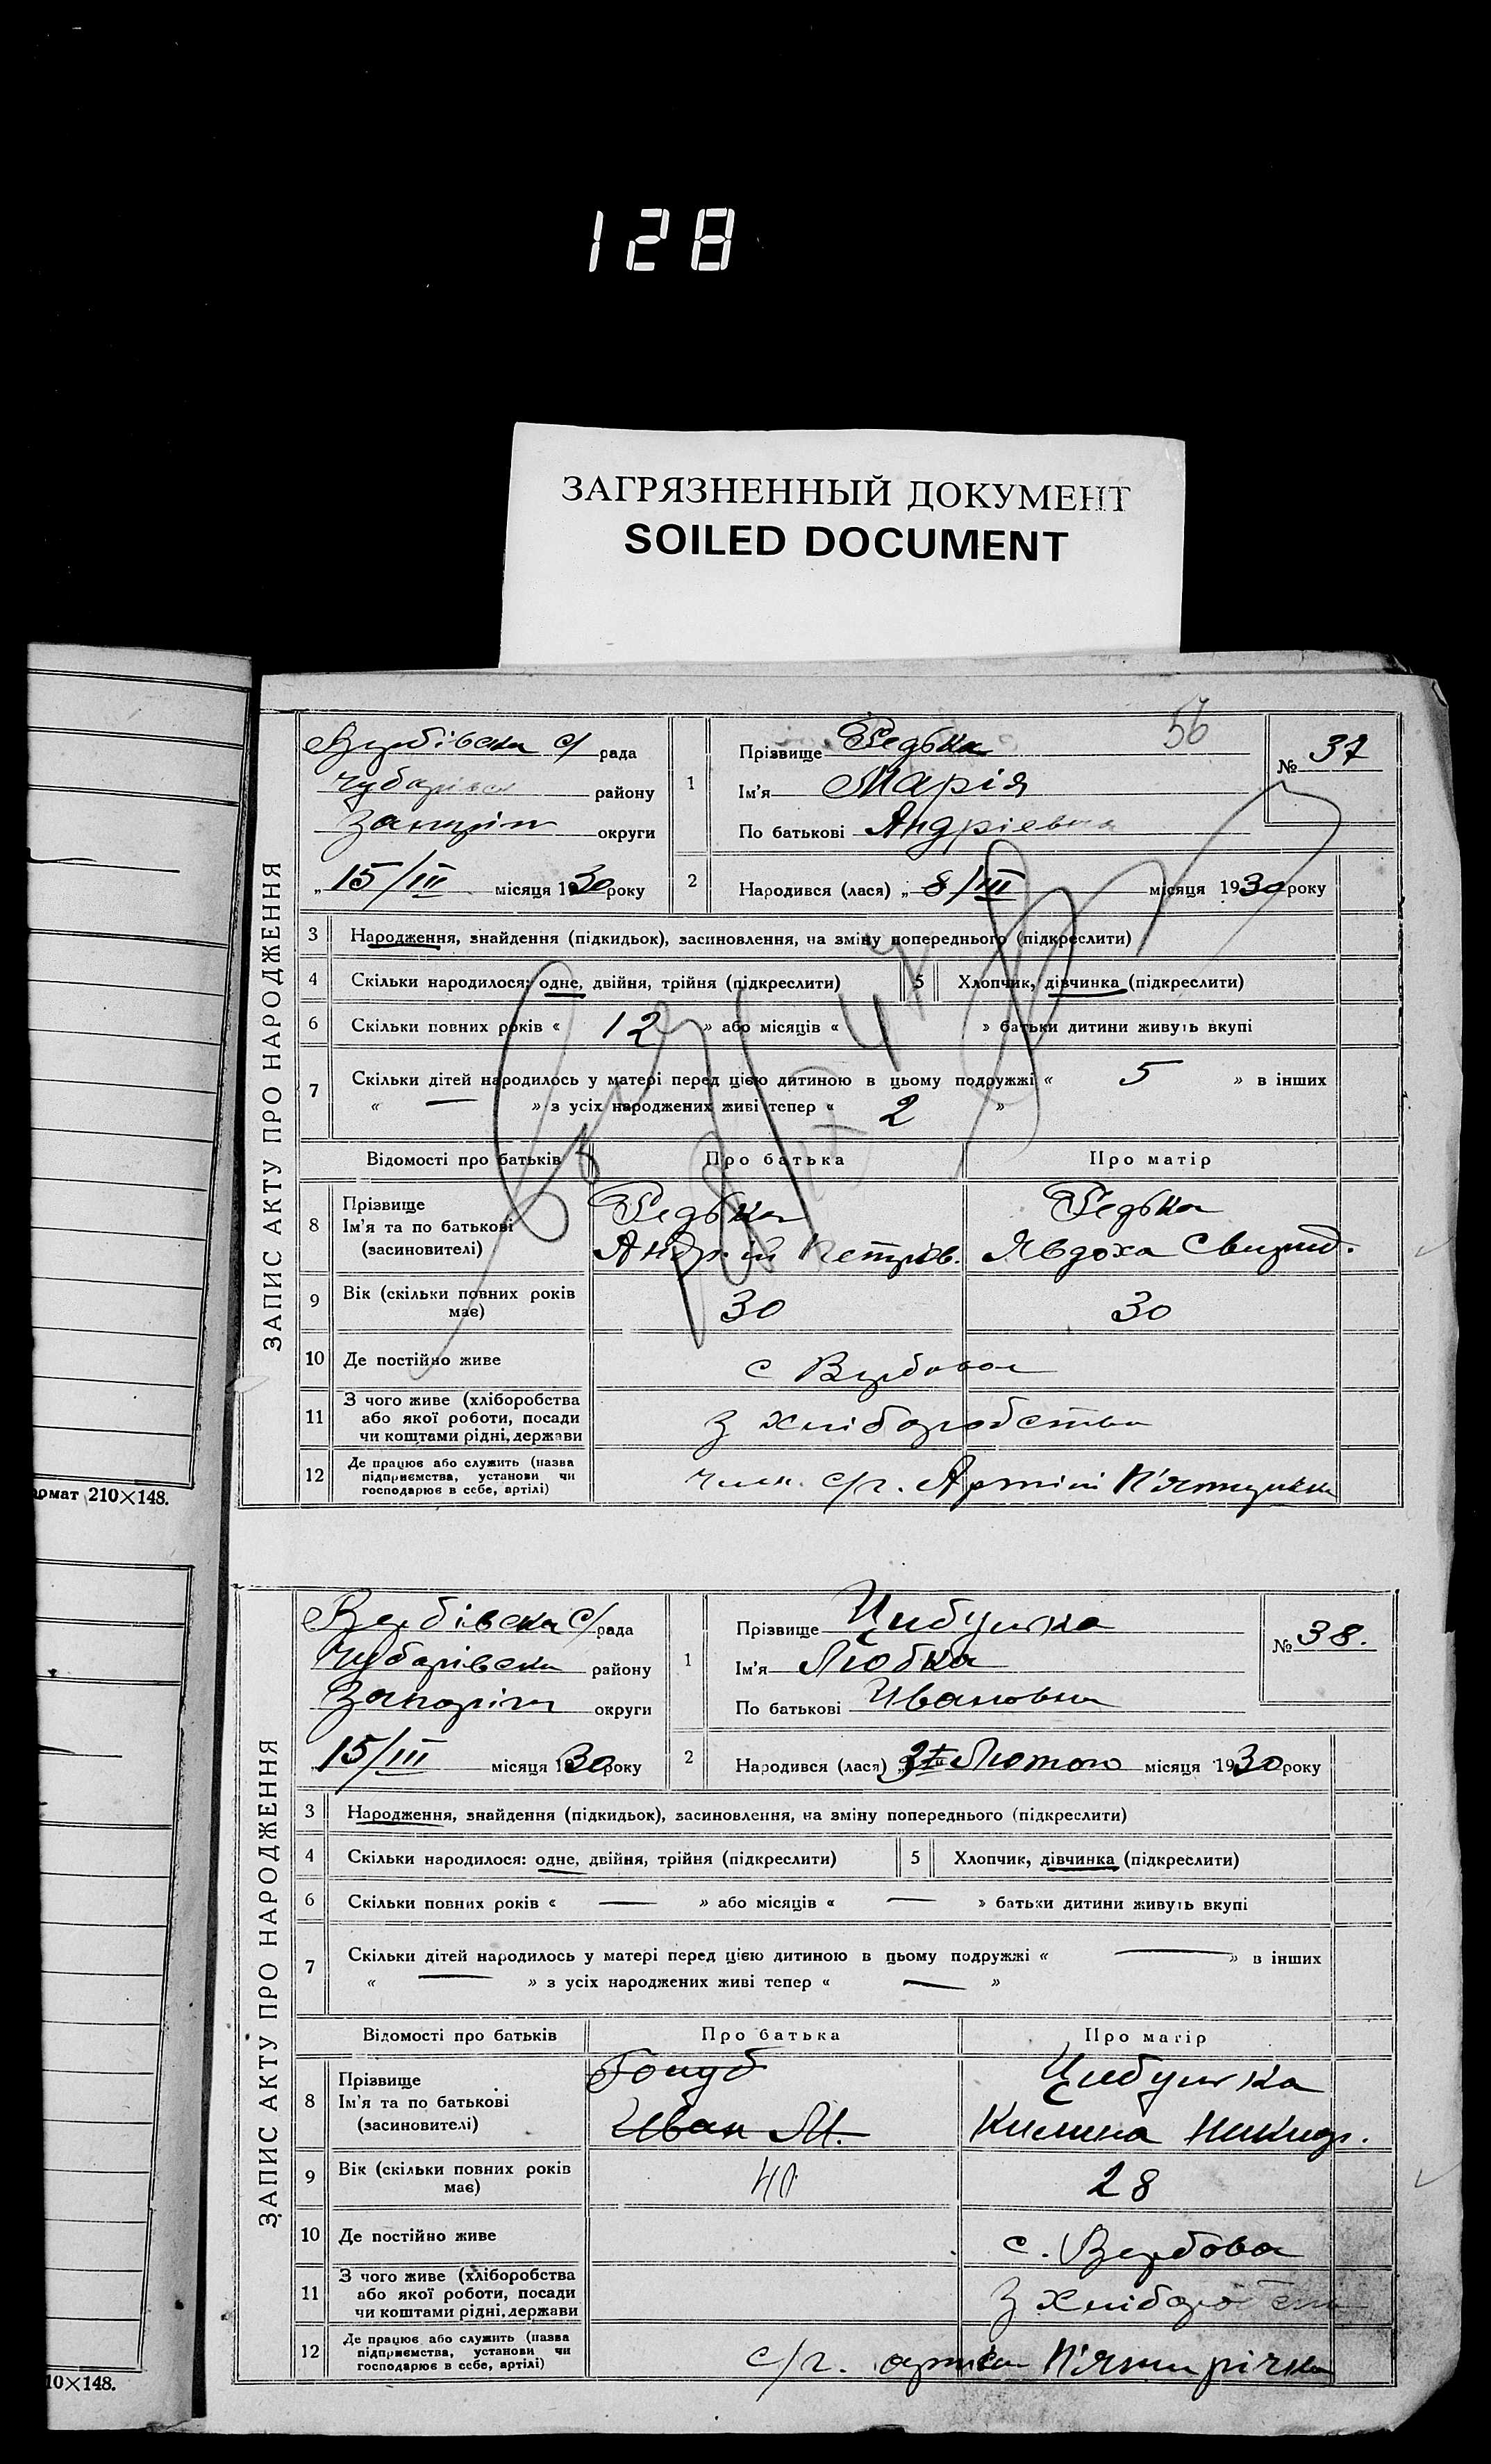 128
ЗАГРЯЗНЕННЫЙ ДОКУМЕНТ
SOILED DOCUMENT
56
ЗАПИС АКТУ ПРО НАРОДЖЕННЯ
Вербівська с/ рада
Чубарівськ району
Запоріж округи
„ 15/III місяця 1930 року
1
Прізвище Редька
Ім'я Марія
По батькові Андріевна
№ 37
2 Народився (лася) „ 8/III місяця 1930 року
3 Народження, знайдення (підкидьок), засиновлення, на зміну попереднього (підкреслити)
4 Скільки народилося: одне, двійня, трійня (підкреслити)
5 Хлопчик, дівчинка (підкреслити)
6 Скільки повних років « 12 » або місяців « » батьки дитини живуть вкупі
7 Скільки дітей народилось у матері перед цією дитиною в цьому подружжі « 5 » в інших
« — » з усіх народжених живі тепер « 2 »
Відомості про батьків Про батька Про матір
8 Прізвище
Ім'я та по батькові
(засиновителі)
Редька
Андрій Петров.
Редька
Явдоха Свирид.
9 Вік (скільки повних років
має)
30
30
10 Де постійно живе
с Вербова
11 З чого живе (хліборобства
або якої роботи, посади
чи коштами рідні, держави
З Хліборобства
12 Де працює або служить (назва
підприємства, установи чи
господарює в себе, артілі)
член. с/г. Артілі
ормат 210×148.
ЗАПИС АКТУ ПРО НАРОДЖЕННЯ
Вербівська с/ рада
Чубарівськ району
Запоріж округи
„ 15/III місяця 1930 року
1
Прізвище Цибулька
Ім'я Любка
По батькові Ивановна
№ 38.
2 Народився (лася) „ Лютого місяця 1930 року
3 Народження, знайдення (підкидьок), засиновлення, на зміну попереднього (підкреслити)
4 Скільки народилося: одне, двійня, трійня (підкреслити)
5 Хлопчик, дівчинка (підкреслити)
6 Скільки повних років « — » або місяців « — » батьки дитини живуть вкупі
7 Скільки дітей народилось у матері перед цією дитиною в цьому подружжі « — » в інших
« — » з усіх народжених живі тепер « — »
Відомості про батьків Про батька Про матір
8 Прізвище
Ім'я та по батькові
(засиновителі)
Голуб
Иван М.
Цибулька
Килина Никиф.
9 Вік (скільки повних років
має)
40
28
10 Де постійно живе
с. Вербова
11 З чого живе (хліборобства
або якої роботи, посади
чи коштами рідні, держави
З Хлібороб
12 Де працює або служить (назва
підприємства, установи чи
господарює в себе, артілі)
с/г. артіль П'ятирічка
10×148.